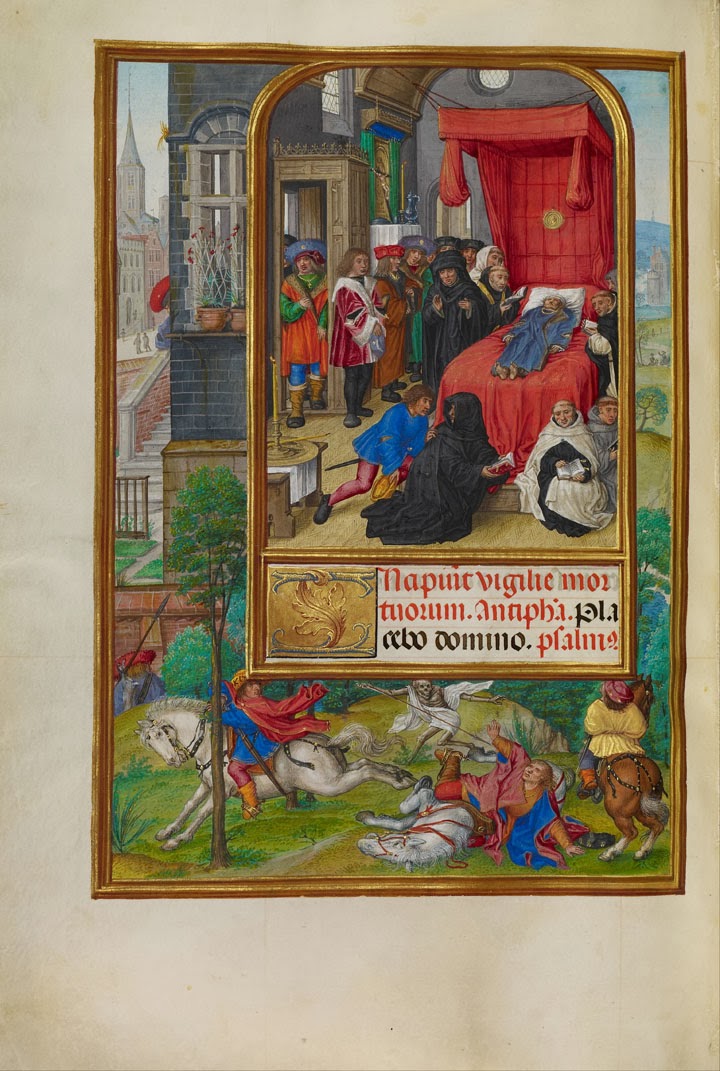 Incipiūt vigilie mor
tuorum. Antiph̄a. Pla
cebo domino. p̄salmꝰ